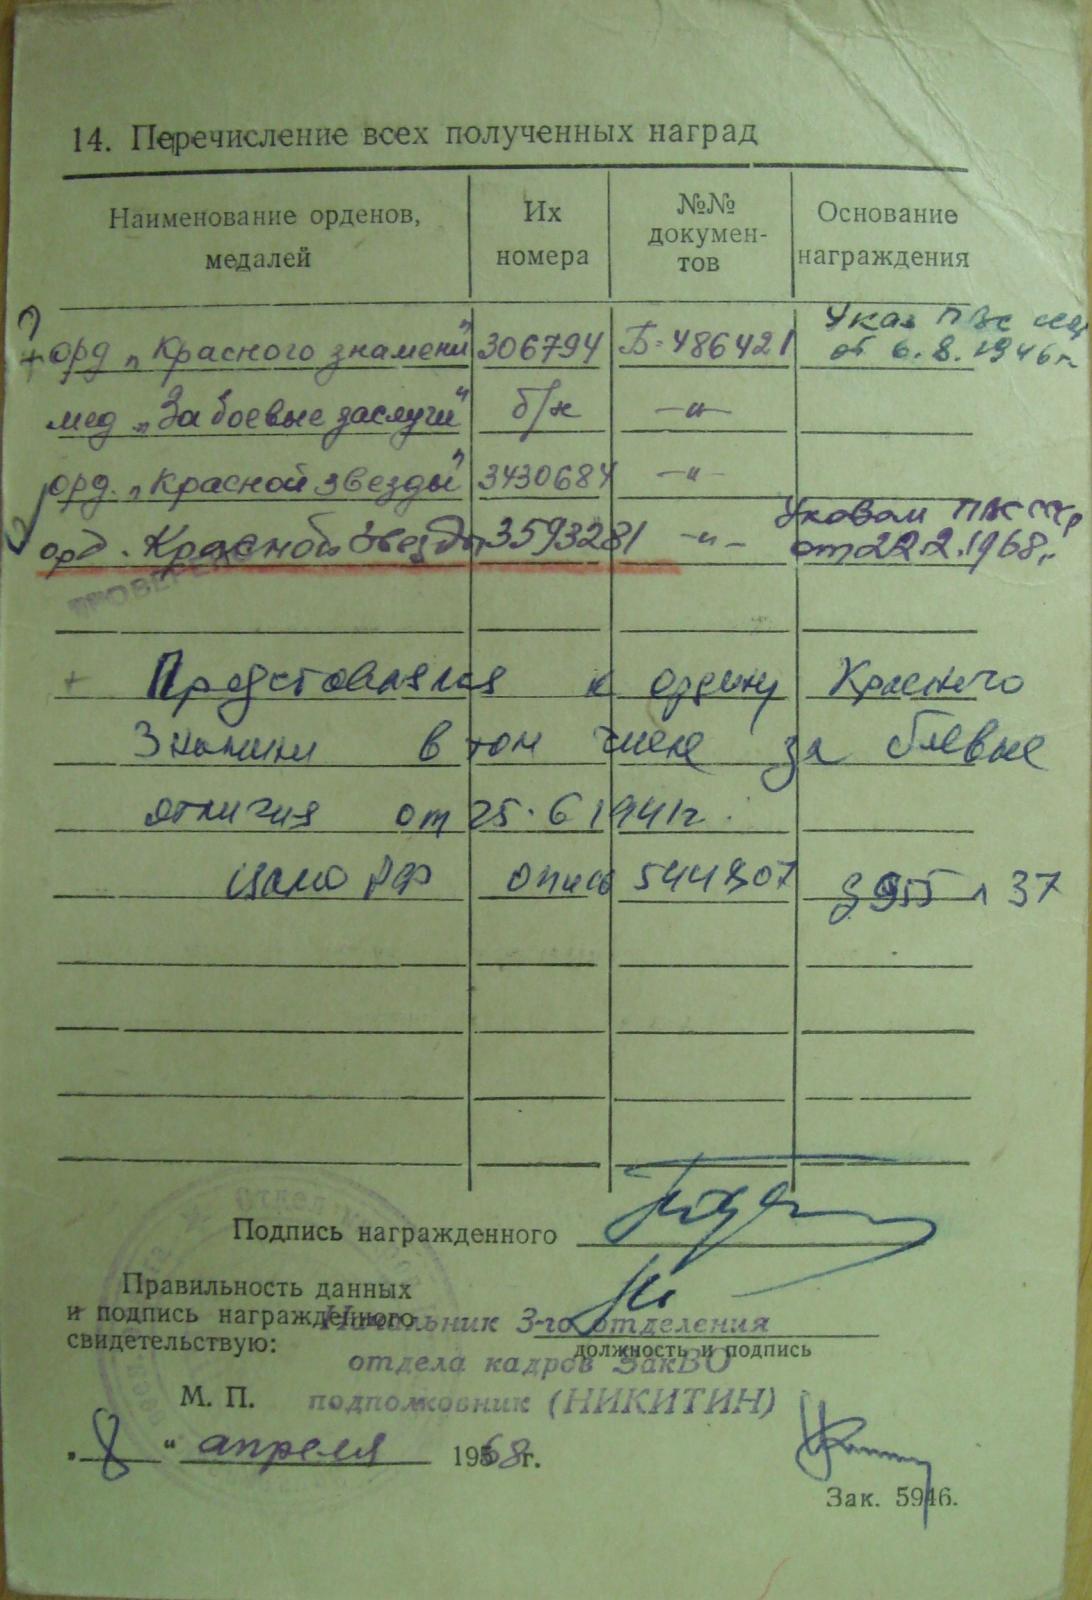 14. Перечисление всех полученных наград
Наименование орденов, медалей
Их номера
№№ докумен-тов
Основание награждения
? Указ ПВС
+ орд „Красного знамени" 306794 Б-486421 от 6.8.1946г
мед „За боевые заслуги" б/н —„—
орд. „Красной звезды" 3430684 —„—
Указом ПВС СССР
орд. Красной Звезды 3593281 —„— от 22.2.1968г.
ПРОВЕРЕНО
+ Представлялся к ордену Красного
Знамени в том числе за боевые
отличия от 25.6 1941г.
ЦАМО РФ опись 544807 д 955 л 37
Подпись награжденного
Правильность данных
и подпись награжденного
свидетельствую:
Начальник 3-го отделения
должность и подпись
отдела кадров ЗакВО
М. П. подполковник (НИКИТИН)
„8" апреля 1968г.
Зак. 5946.